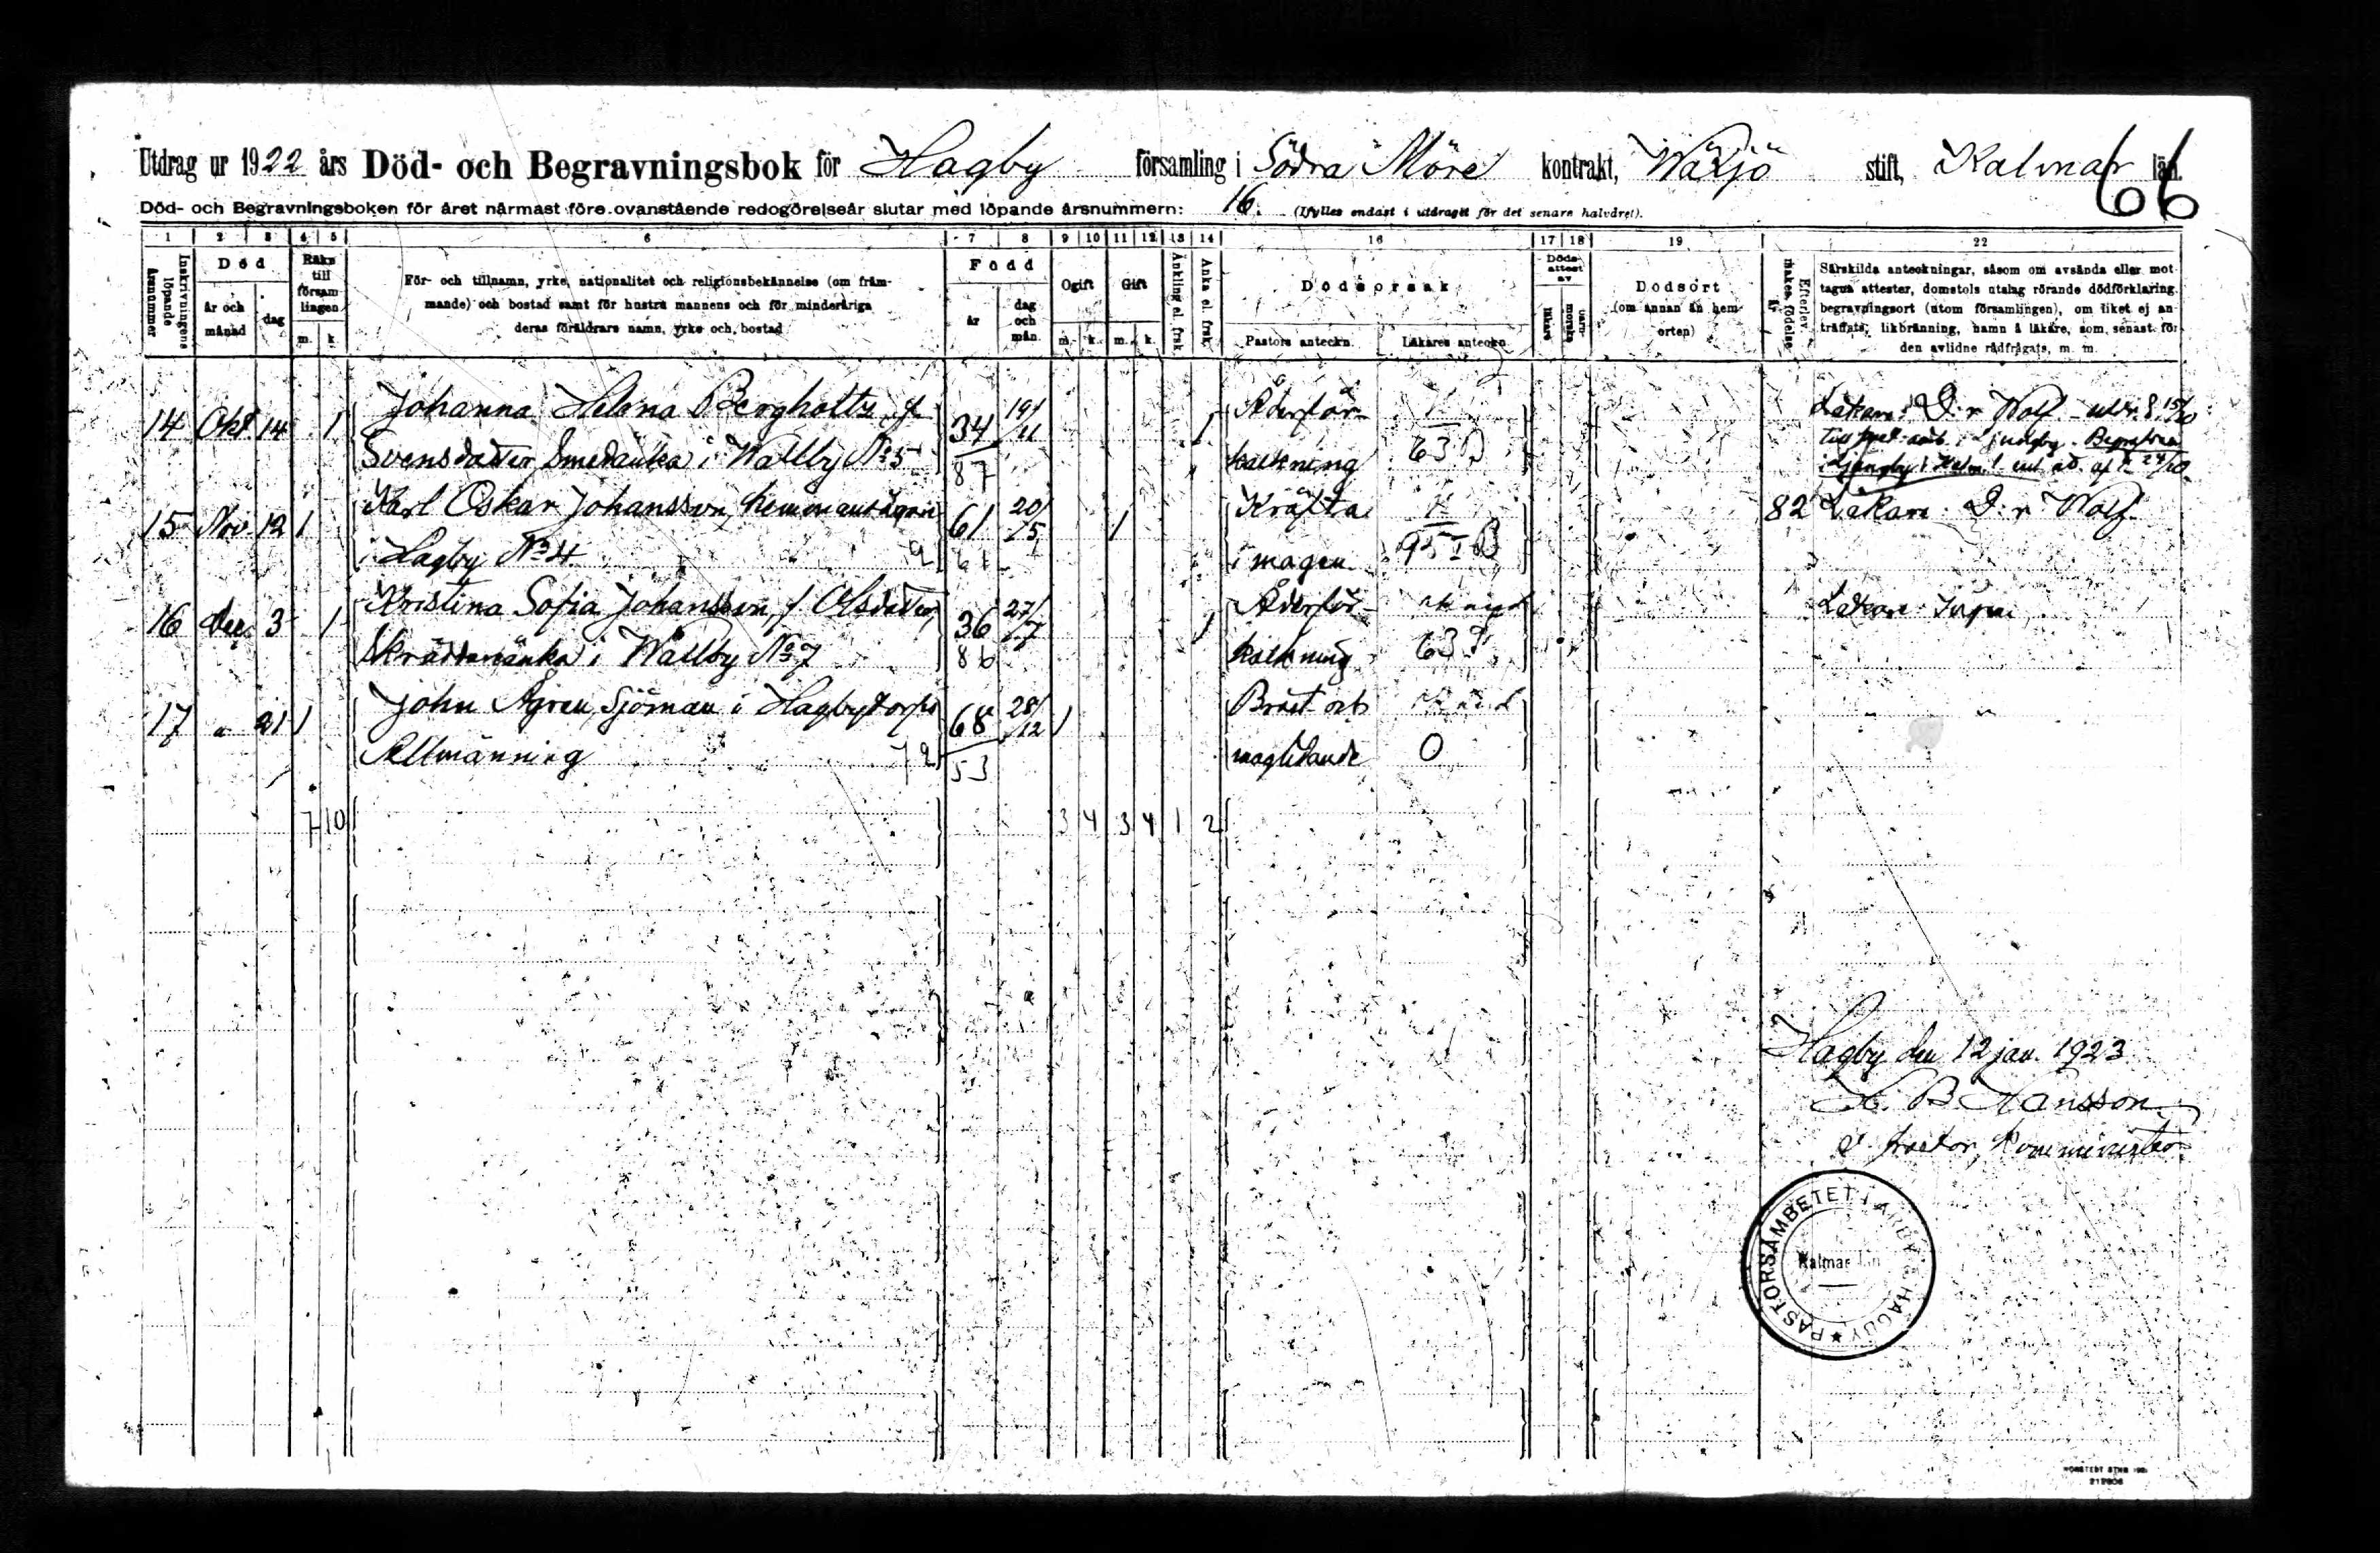 Utdrag ur 1922 års Död- och Begravningsbok för Hagby församling i Södra Möre kontrakt, Wäxjö stift, Kalmar län.
66
Död- och Begravningsboken för året närmast före ovanstående redogörelseår slutar med löpande årsnummern: 16. (Ifylles endast i utdraget för det senare halvåret).
1 2 3 4 5 6 7 8 9 10 11 12 13 14 16 17 18 19 22
Inskrivningens löpande årsnummer
Död
År och månad
dag
Räkn. till församlingen
m. k.
För- och tillnamn, yrke, nationalitet och religionsbekännelse (om främ-
mande) och bostad samt för hustru mannens och för minderåriga
deras föräldrars namn, yrke och bostad
Född
år
dag och mån.
Ogift
Gift
m. k. m. k.
Änkling el. frsk.
Änka el. frsk.
Dödsorsak
Pastors anteckn. Läkares anteckn.
Dödsattest av
läkare
barnmorska
Dödsort
(om annan än hem-
orten)
Efterlev. makes födelseår
Särskilda anteckningar, såsom om avsända eller mot-
tagna attester, domstols utslag rörande dödförklaring,
begravningsort (utom församlingen), om liket ej an-
träffats, likbränning, namn å läkare, som senast för
den avlidne rådfrågats, m. m.
14 Okt 14 1 Johanna Helena Bergholtz f. 34 19/11 1 Åderför- Läkare: D:r Wolf
Svensdotter Smedänka i Wallby No 5 87 kalkning 63
15 Nov 12 1 Karl Oskar Johansson, hemmansägare 61 20/5 1 Kräfta 82 Läkare D:r Wolf
i Hagby No 4 61 i magen 95 I B
16 Dec 3 1 Kristina Sofia Johansson, f. Olsdotter 36 27/7 1 Åderför- Läkare: Ingen
Skräddaränka i Wallby No 7 86 kalkning 63
17 " 21 1 John Ågren, Sjöman i Hagbytorps 68 28/12 1 Bröst och
Allmänning 53 maglidande 0
7 10 3 4 3 4 1 2
Hagby den 12 jan. 1923
B Hansson
v. Pastor, Komminister
PASTORSÄMBETET I ARBY & HAGBY
Kalmar län